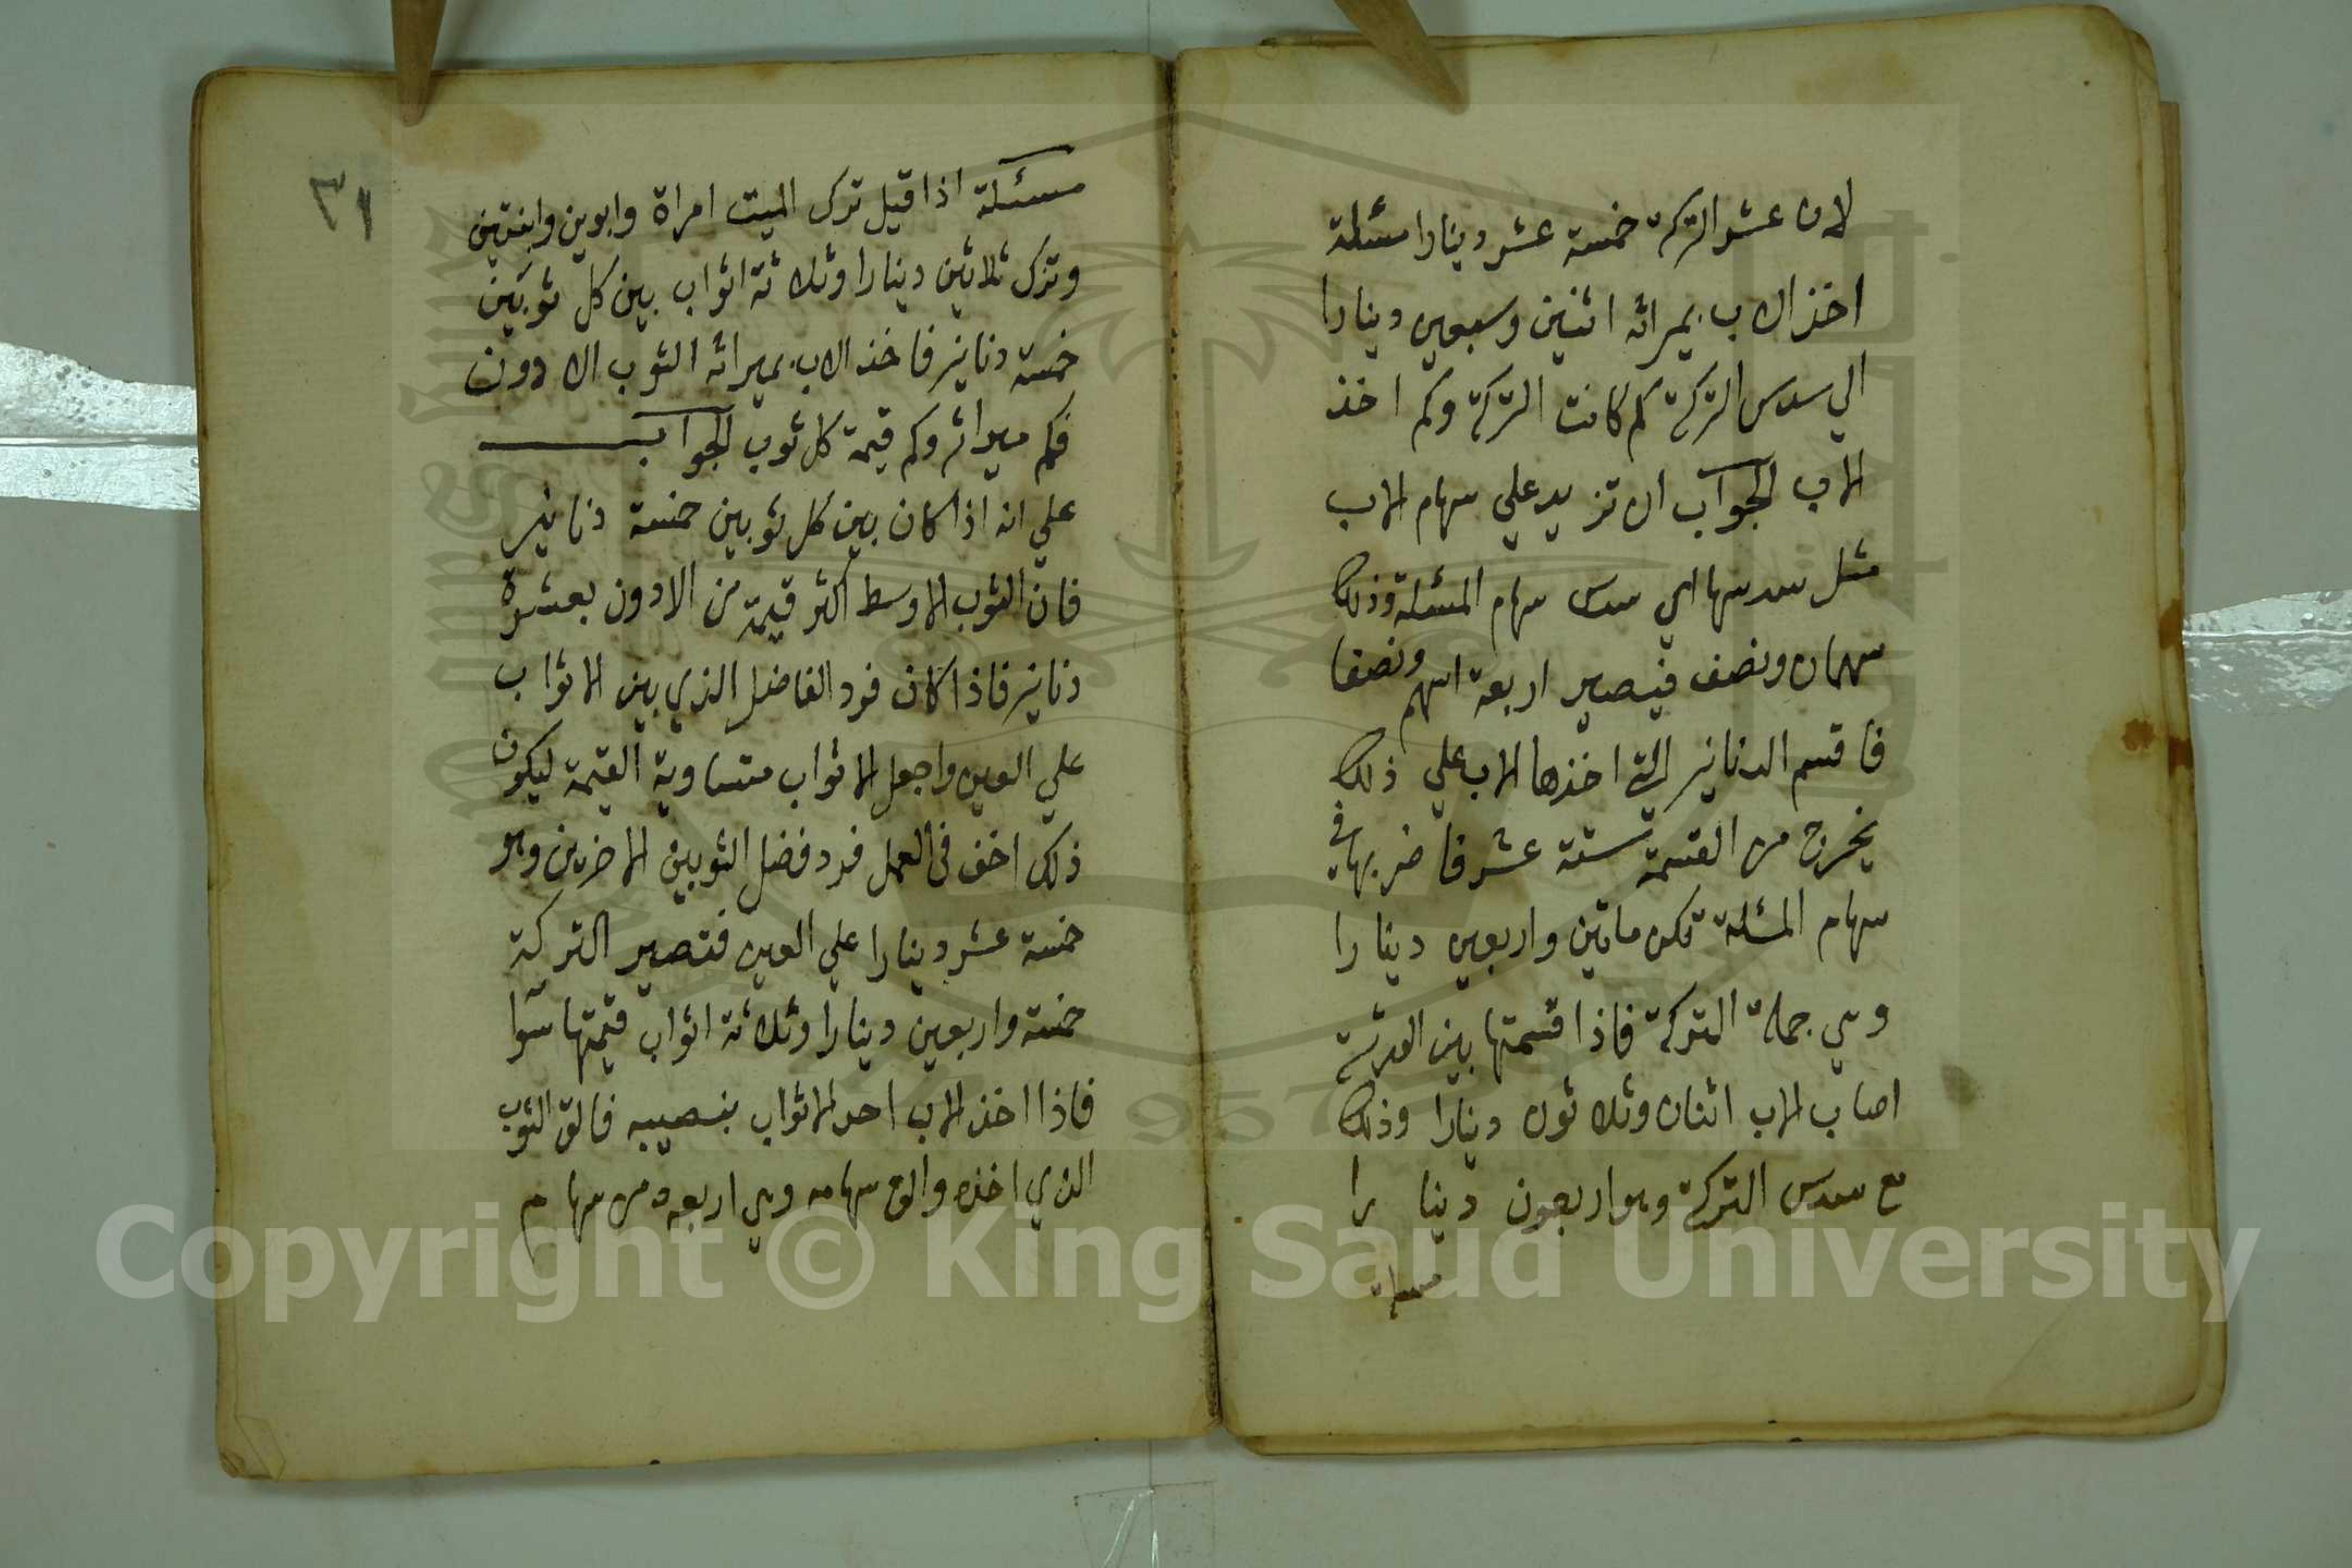 لان عشر التركة خمسة عشر دينارا مسئلة
اخذ الاب بميراثه اثنين وسبعين دينارا
الي سدس التركة كم كانت التركة وكم اخذ
الاب الجواب ان تزيد علي سهام الاب
مثل سدسها اي سدس سهام المسئلة وذلك
سهمان ونصف فيصير اربعة اسهم ونصفا
فاقسم الدنانير التي اخذها الاب علي ذلك
يخرج من القسمة ستة عشر فاضربها في
سهام المسئلة تكن ماتين واربعين دينارا
وهي جملة التركة فاذا قسمتها بين الورثة
اصاب الاب اثنان وثلاثون دينارا وذلك
مع سدس التركة وهو اربعون دينا را
مسئلة
٣١
مسئلة اذا قيل ترك الميت امراة وابوين وابنتين
وترك ثلاثين دينارا وثلاثة اثواب بين كل ثوبين
خمسة دنانير فاخذ الاب بميراثه الثوب الادون
فكم ميراثه وكم قيمة كل ثوب الجواب
علي انه اذا كان بين كل ثوبين خمسة دنانير
فان الثوب الاوسط اكثر قيمة من الادون بعشرة
دنانير فاذا كان فرد الفاضل الذي بين الاثواب
علي العين واجعل الاثواب متساوية القيمة ليكون
ذلك اخف في العمل فرد فضل الثوبين الاخرين وهو
خمسة عشر دينارا علي العين فتصير التركة
خمسة واربعين دينارا وثلاثة اثواب قيمتها سوا
فاذا اخذ الاب احد الاثواب بنصيبه فالق الثوب
الذي اخذه والق سهامه وهي اربعة من سهام
Copyright © King Saud University
1957